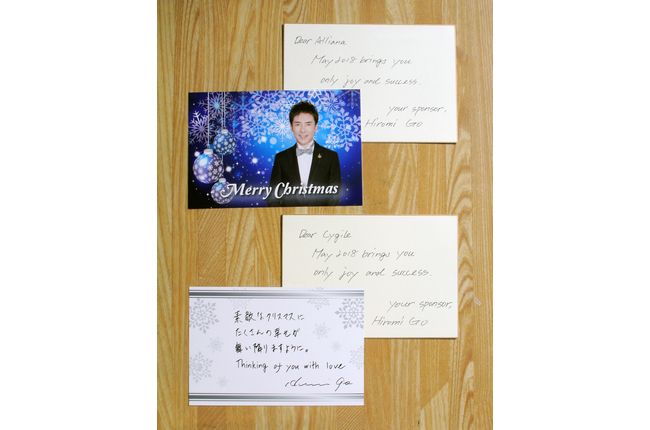 Dear Alliana
May 2018 brings you
only joy and success.
your sponser,
Hiromi Go
Merry Christmas
Dear Cygile
May 2018 brings you
only joy and success.
your sponser,
Hiromi Go
素敵なクリスマスに
たくさんの幸せが
舞い降りますように。
Thinking of you with love